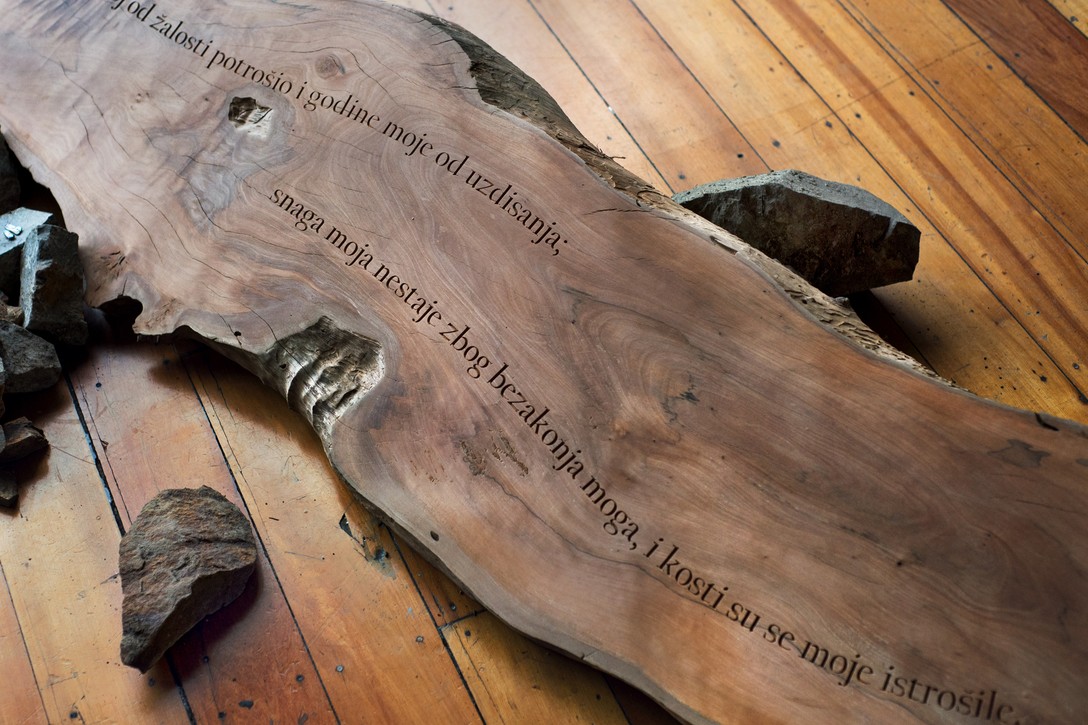 od žalosti potrošio i godine moje od uzdisanja;
snaga moja nestaje zbog bezakonja moga, i kosti su se moje istrošile